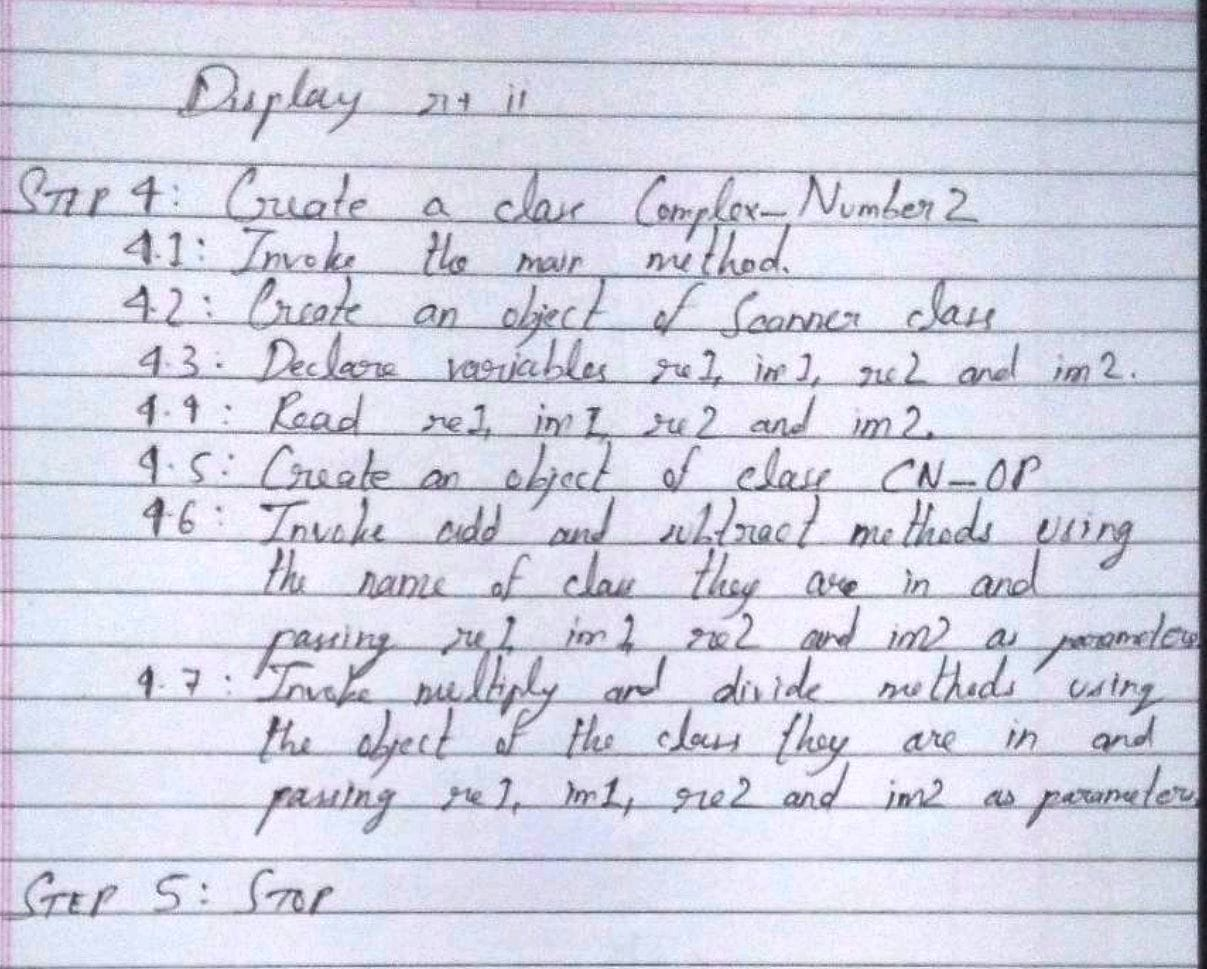 Display r1 + i1
STEP 4: Create a class Complex_Number2
4.1: Invoke the main method.
4.2: Create an object of Scanner class
4.3: Declare variables re1, im1, re2 and im2.
4.4: Read re1, im1, re2 and im2.
4.5: Create an object of class CN_OP
4.6: Invoke add and subtract methods using
the name of class they are in and
passing re1, im1, re2 and im2 as parameters
4.7: Invoke multiply and divide methods using
the object of the class they are in and
passing re1, im1, re2 and im2 as parameters.
STEP 5: STOP